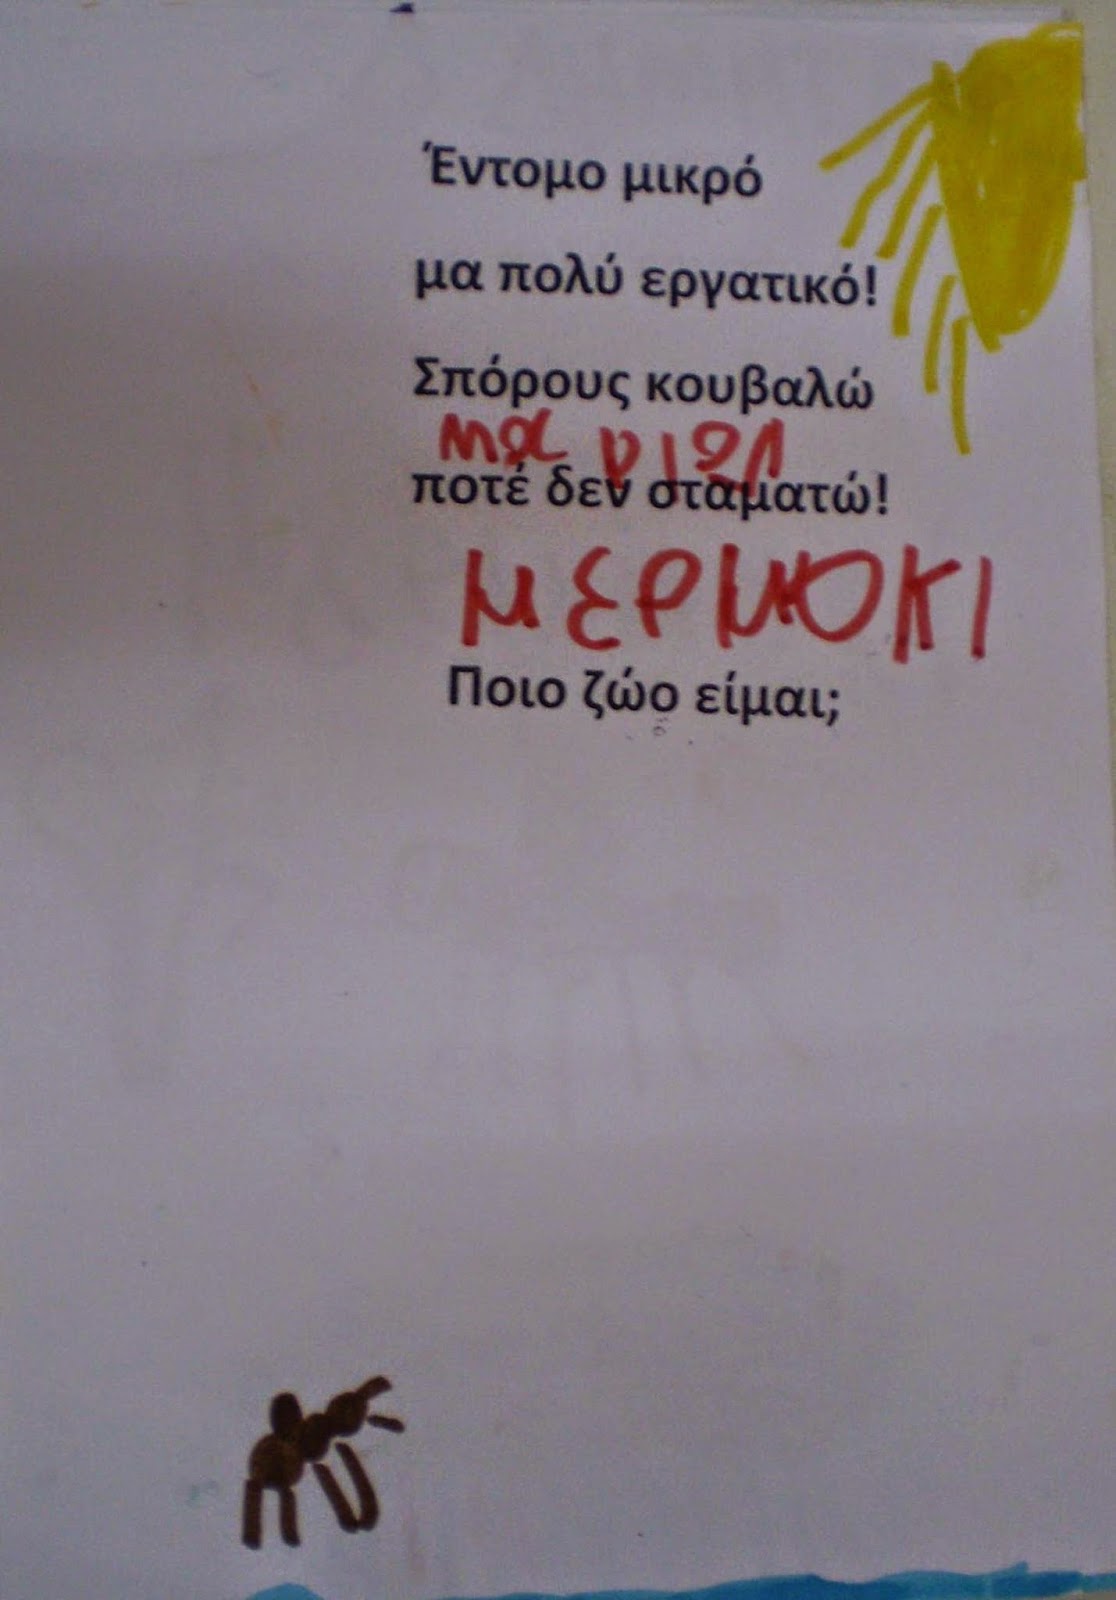 Έντομο μικρό
μα πολύ εργατικό!
Σπόρους κουβαλώ
ποτέ δεν σταματώ!
ΜΕΡΜΟΚΙ
Ποιο ζώο είμαι;